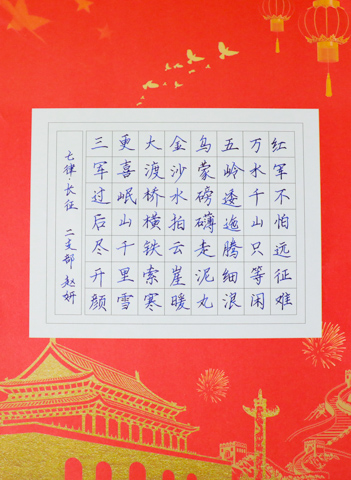 红军不怕远征难
万水千山只等闲
五岭逶迤腾细浪
乌蒙磅礴走泥丸
金沙水拍云崖暖
大渡桥横铁索寒
更喜岷山千里雪
三军过后尽开颜
七律长征 二支部 赵妍